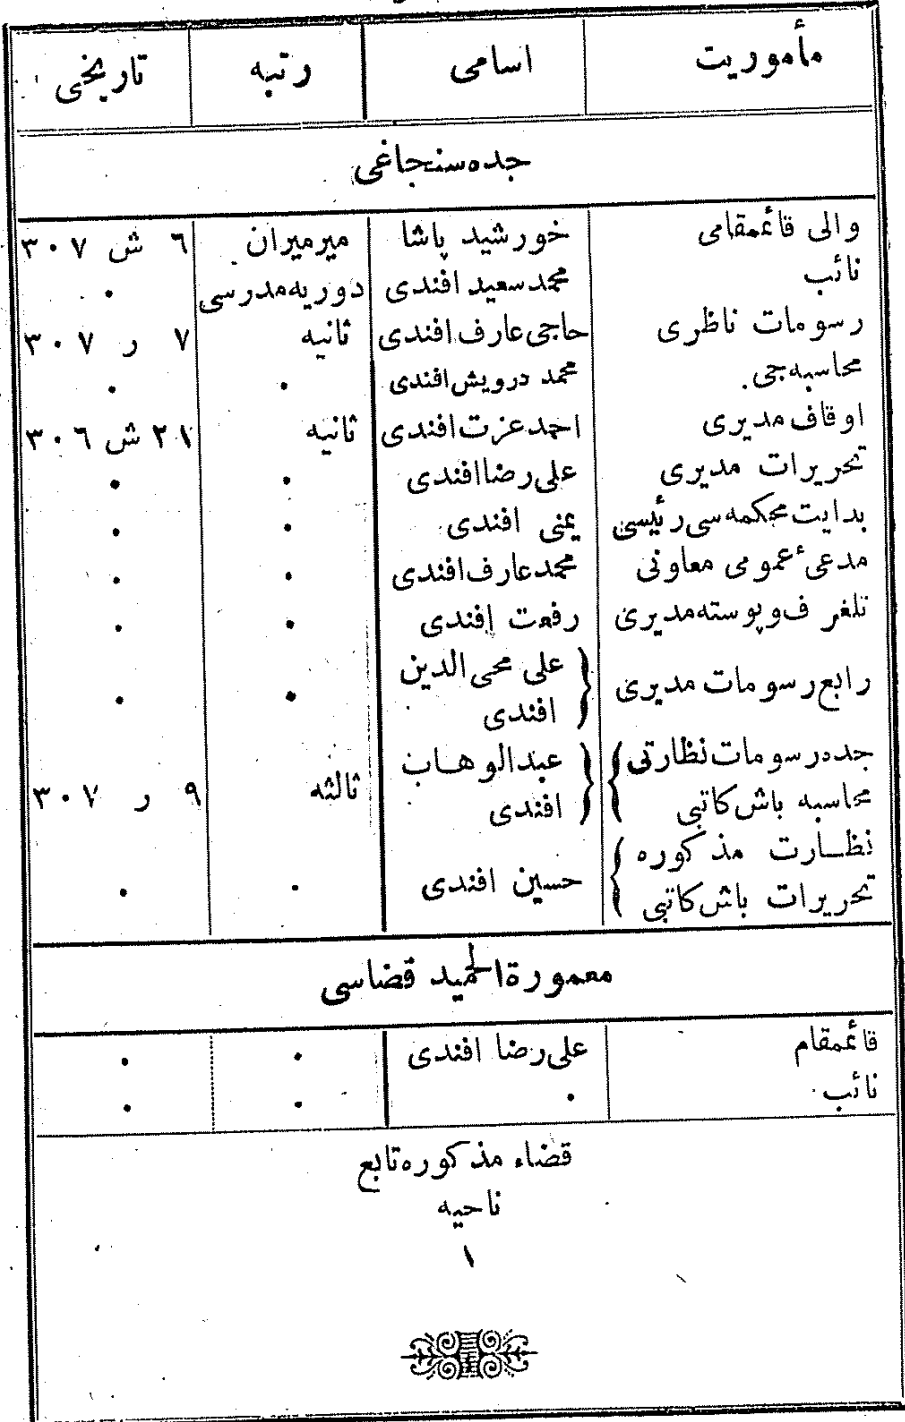 مأموریت اسامی رتبه تاریخی
جده سنجاغی
والی قائمقامی خورشید پاشا میرمیران ٦ ش ٣٠٧
نائب محمد سعید افندی دوریه مدرسی •
رسومات ناظری حاجی عارف افندی ثانیه ٧ ر ٣٠٧
محاسبه جی محمد درویش افندی • •
اوقاف مدیری احمد عزت افندی ثانیه ٢١ ش ٣٠٦
تحریرات مدیری علی رضا افندی • •
بدایت محکمه سی رئیسی یمنی افندی • •
مدعیٔ عمومی معاونی محمد عارف افندی • •
تلغراف و پوسته مدیری رفعت افندی • •
رابع رسومات مدیری علی محی الدین افندی • •
جده رسومات نظارتی محاسبه باش کاتبی عبدالوهاب افندی ثالثه ٩ ر ٣٠٧
نظارت مذکوره تحریرات باش کاتبی حسین افندی • •
معمورة الحمید قضاسی
قائمقام علی رضا افندی • •
نائب • • •
قضاء مذکوره تابع
ناحیه
١